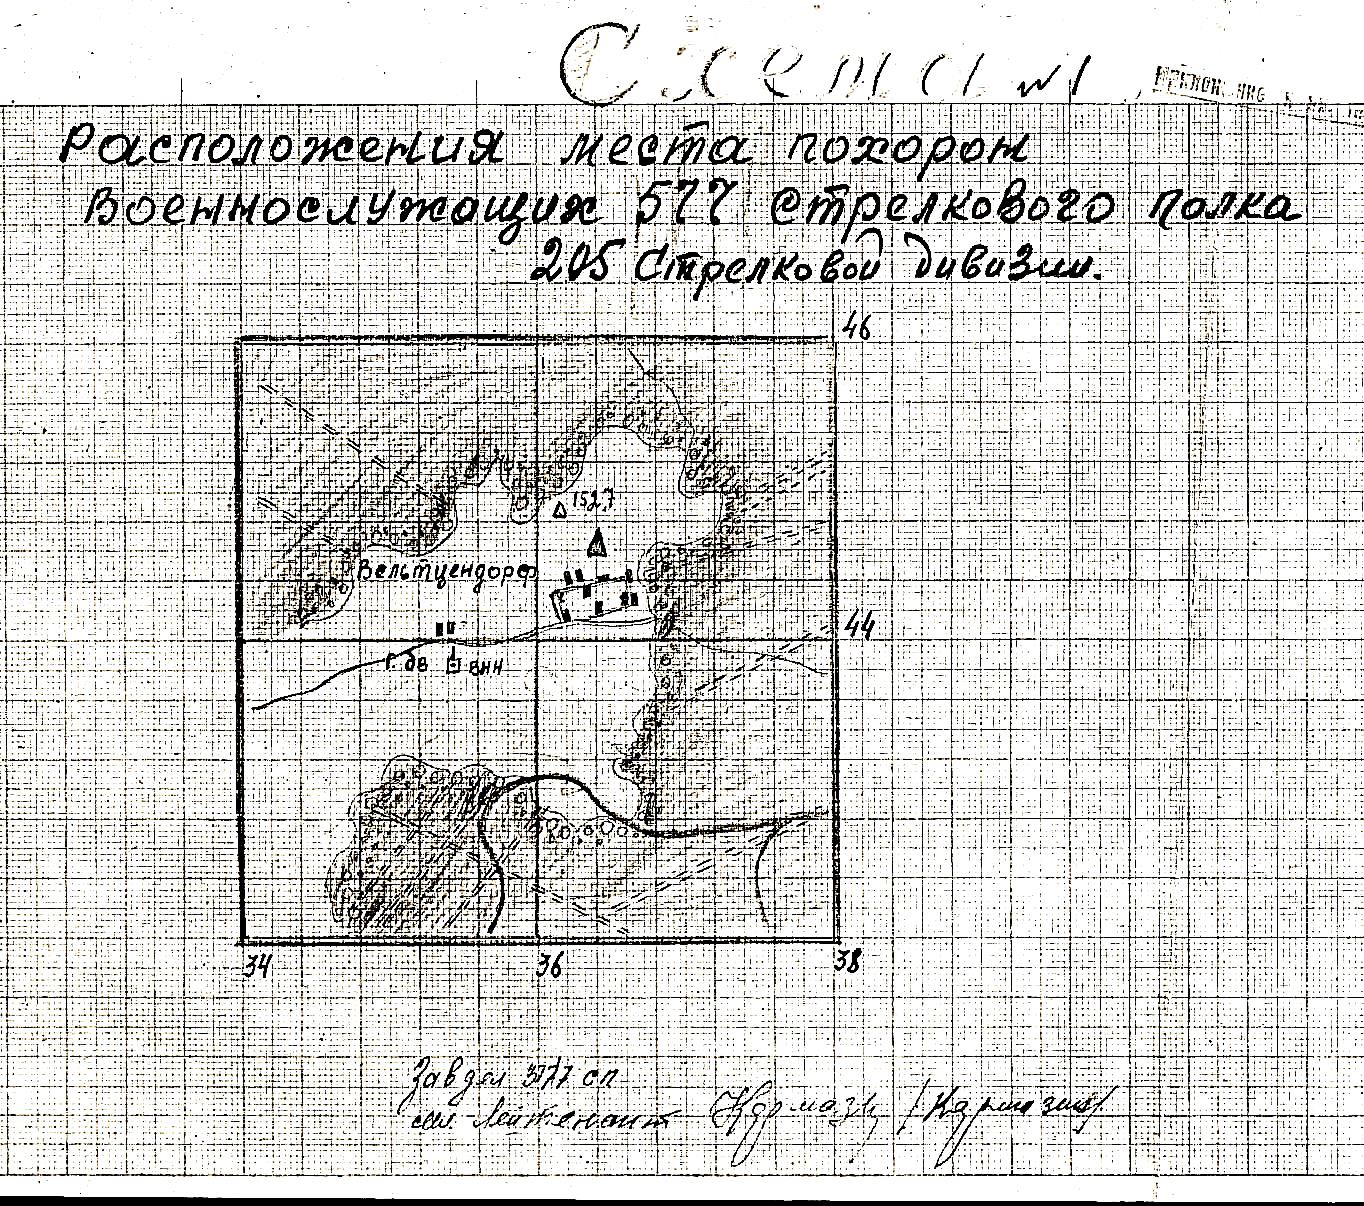 Схема №1
Расположения места похорон
Военнослужащих 577 Стрелкового полка
205 Стрелковой дивизии.
46
152,7
Вельтцендорф
44
Г. дв
ВНН
34 36 38
Завдел 577 сп
мл. Лейтенант Кармазин /Кармазин/